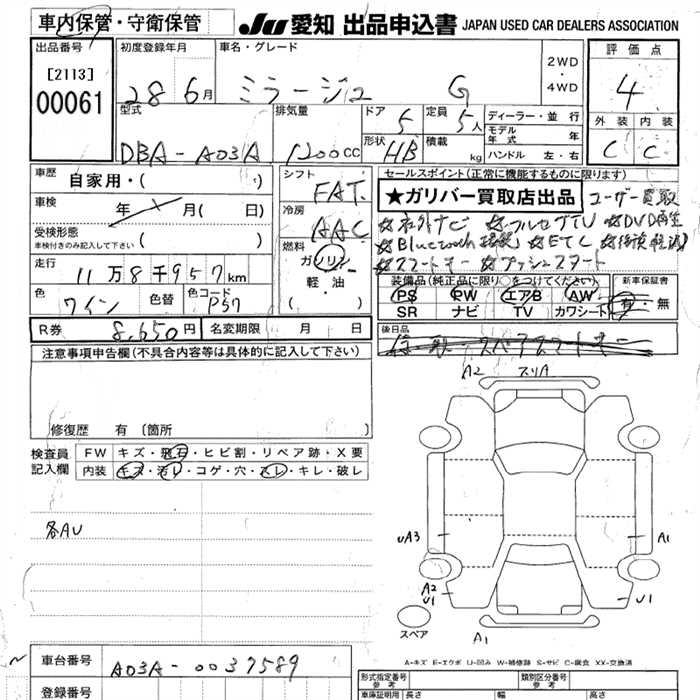 車内保管・守衛保管
JU 愛知 出品申込書 JAPAN USED CAR DEALERS ASSOCIATION
出品番号
[2113]
00061
初度登録年月
28 6月
車名・グレード
ミラージュ G
2WD
・
4WD
評価点
4
外装 内装
C C
型式
DBA-A03A
排気量
1200cc
ドア
5
定員
5人
形状
HB
積載
kg
ディーラー・並行
モデル年式 年
ハンドル 左・右
車歴
自家用・( )
車検
年 / 月( 日)
受検形態
車検付きのみ記入して下さい ( )
走行
11万8千957km
色
ワイン
色替
色コード
P57
シフト
FAT
冷房
AAC
燃料
ガソリン
軽油
( )
セールスポイント(正常に機能するものに限ります)
★ガリバー買取店出品 ユーザー買取
☆社外ナビ ☆フルセグTV ☆DVD再生
☆Bluetooth接続 ☆ETC
☆スマートキー ☆プッシュスタート
装備品(純正品に限り○をつけてください)
PS PW エアB AW
SR ナビ TV カワシート
新車保証書
有・無
R券 8,650円
名変期限 月 日
後日品
注意事項申告欄(不具合内容等は具体的に記入して下さい)
修復歴 有 〔箇所 〕
検査員記入欄
FW キズ・飛石・ヒビ割・リペア跡・X要
内装 キズ・汚レ・コゲ・穴・スレ・キレ・破レ
各AU
A2 スリA
UA3 A1
A2
U1 U1
スペア A1
A-キズ E-エクボ U-凹み W-補修跡 S-サビ C-腐食 XX-交換済
車台番号 A03A-0037589
登録番号
形式指定番号
参考
類別区分番号
参考
車庫証明用
参考
長さ 幅 高さ